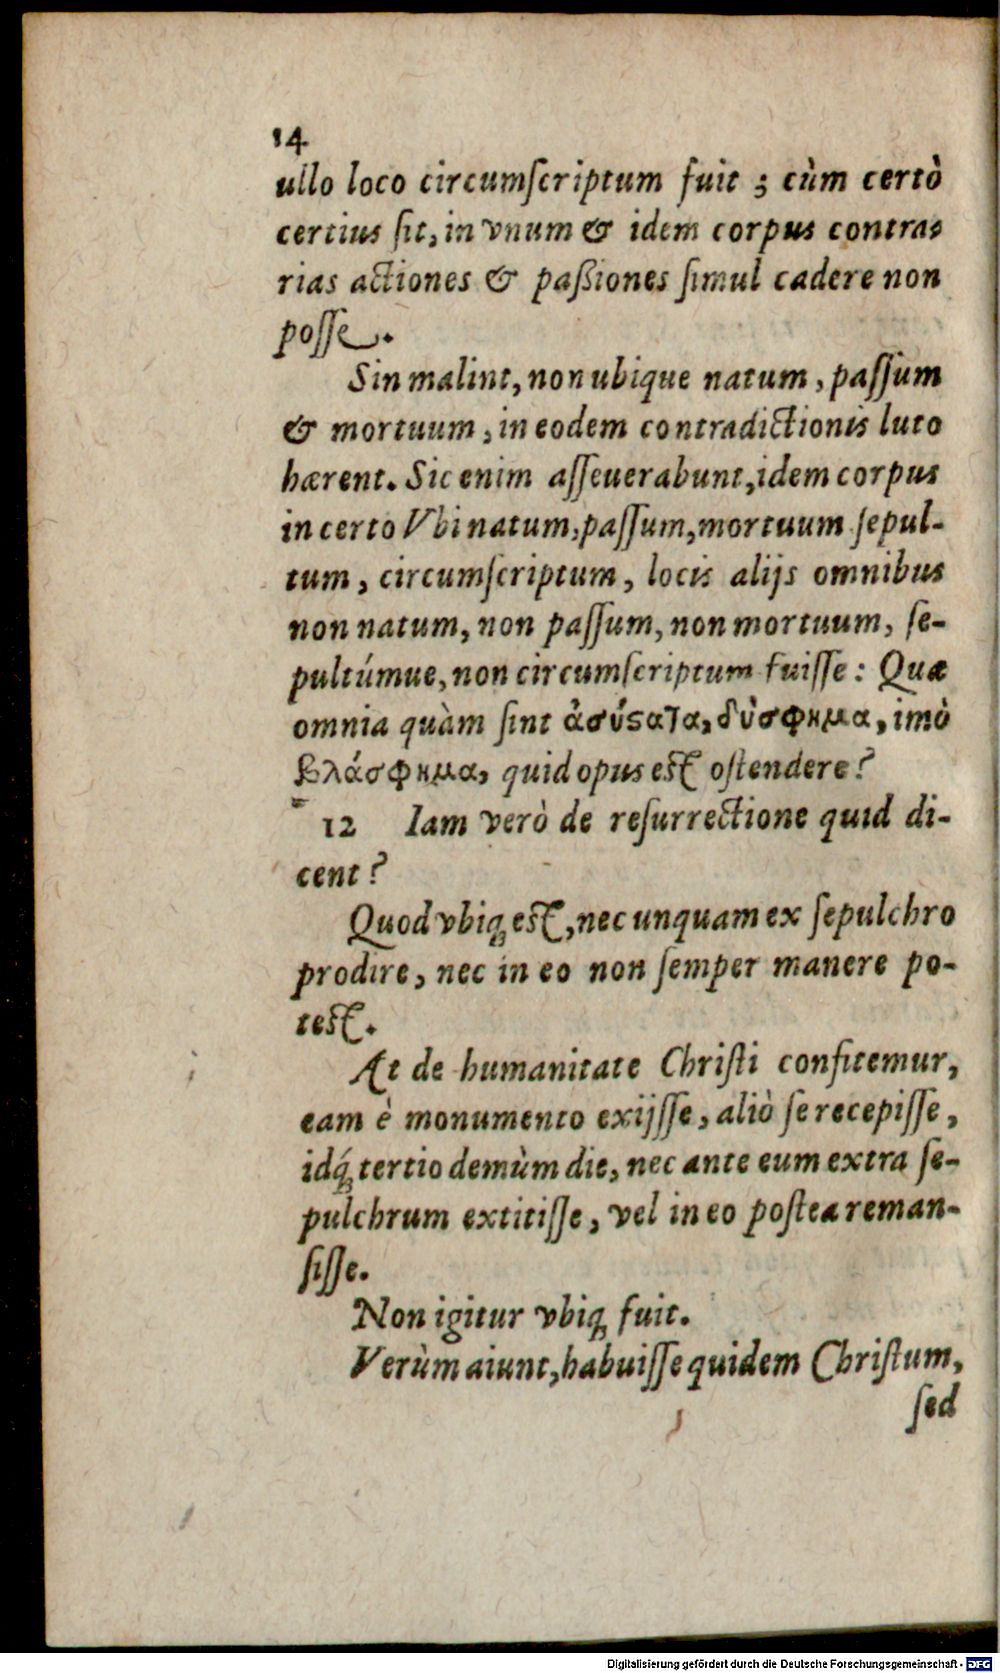 14
ullo loco circumſcriptum fuit ; cùm certò
certius ſit, in vnum & idem corpus contra-
rias actiones & paßiones ſimul cadere non
poſſe.
Sin malint, non ubique natum, paſſum
& mortuum, in eodem contradictionis luto
hærent. Sic enim aſſeuerabunt, idem corpus
in certo Vbi natum, paſſum, mortuum ſepul-
tum, circumſcriptum, locis alijs omnibus
non natum, non paſſum, non mortuum, ſe-
pultúmue, non circumſcriptum fuiſſe: Quæ
omnia quàm ſint ἀσύϛατα, δύσφημα, imò
βλάσφημα, quid opus eſt oſtendere?
12 Iam verò de reſurrectione quid di-
cent?
Quod vbiq; eſt, nec unquam ex ſepulchro
prodire, nec in eo non ſemper manere po-
teſt.
At de humanitate Chriſti confitemur,
eam è monumento exijſſe, aliò ſe recepiſſe,
idq́; tertio demùm die, nec ante eum extra ſe-
pulchrum extitiſſe, vel in eo poſtea reman-
ſiſſe.
Non igitur vbiq; fuit.
Verùm aiunt, habuiſſe quidem Chriſtum,
ſed
Digitalisierung gefördert durch die Deutsche Forschungsgemeinschaft - DFG